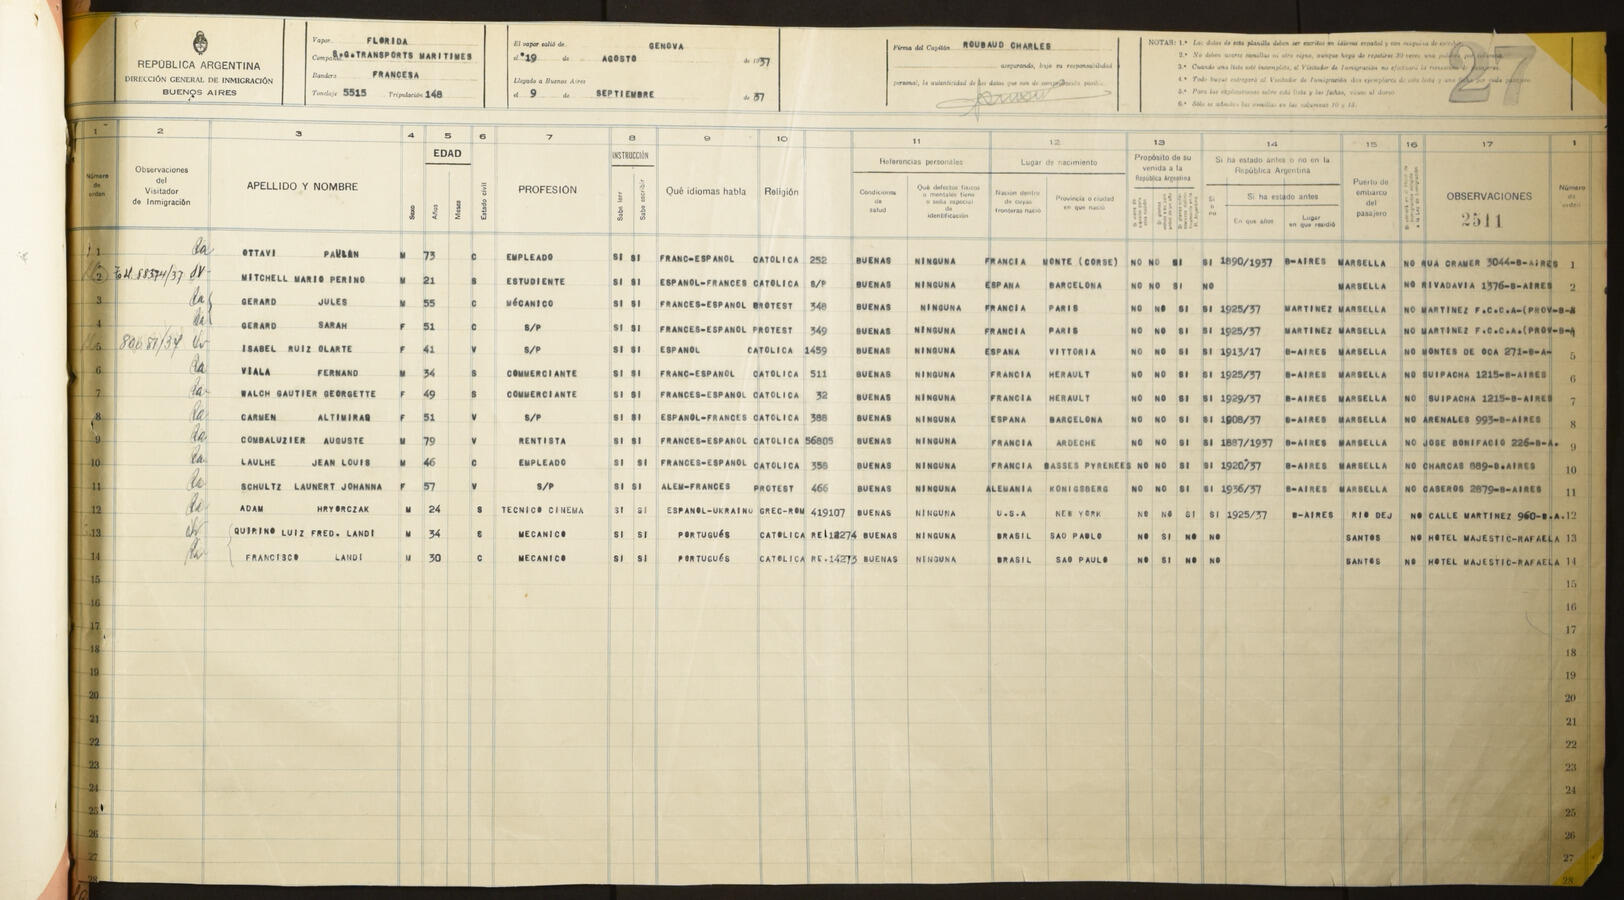 REPÚBLICA ARGENTINA
DIRECCIÓN GENERAL DE INMIGRACIÓN
BUENOS AIRES
Vapor FLORIDA
Compañía S.G.TRANSPORTS MARITIMES
Bandera FRANCESA
Tonelaje 5515 Tripulación 148
El vapor salió de GENOVA
el 19 de AGOSTO de 1937
Llegado a Buenos Aires
el 9 de SEPTIEMBRE de 37
Firma del Capitán ROUBAUD CHARLES
asegurando, bajo su responsabilidad
personal, la autenticidad de los datos que son de
NOTAS: 1.ª Los datos de esta planilla deben ser escritos en idioma español y con máquina de
2.ª No deben usarse comillas ni otro signo, aunque haya de repetirse 20 veces una palabra
3.ª Cuando una lista esté incompleta, el Visitador de Inmigración no efectuará la
4.ª Todo buque entregará al Visitador de Inmigración dos ejemplares de esta lista y una
5.ª Para las explicaciones sobre esta lista y las fichas, véase al dorso
6.ª Sólo se admiten las comillas en las columnas 10 y 15.
27
1 2 3 4 5 6 7 8 9 10 11 12 13 14 15 16 17 1
Número de orden
Observaciones del Visitador de Inmigración
APELLIDO Y NOMBRE
Sexo
EDAD
Años
Meses
Estado civil
PROFESIÓN
INSTRUCCIÓN
Sabe leer
Sabe escribir
Qué idiomas habla
Religión
Referencias personales
Condiciones de salud
Qué defectos físicos o mentales tiene o seña especial de identificación
Lugar de nacimiento
Nación dentro de cuyas fronteras nació
Provincia o ciudad en que nació
Propósito de su venida a la República Argentina
Si ha estado antes o no en la República Argentina
Si o no
Si ha estado antes
En que años
Lugar en que residió
Puerto de embarco del pasajero
OBSERVACIONES
2511
Número de orden
1 OTTAVI M 73 C EMPLEADO SI SI FRANC-ESPANOL CATOLICA 252 BUENAS NINGUNA FRANCIA MONTE (CORSE) NO NO SI SI 1890/1937 B-AIRES MARSELLA NO RUA CRAMER 3044-B-AIRES 1
2 MITCHELL MARIO PERINO M 21 S ESTUDIENTE SI SI ESPANOL-FRANCES CATOLICA S/P BUENAS NINGUNA ESPANA BARCELONA NO NO SI NO MARSELLA NO RIVADAVIA 1376-B-AIRES 2
3 GERARD JULES M 55 C MéCANICO SI SI FRANCES-ESPANOL PROTEST 348 BUENAS NINGUNA FRANCIA PARIS NO NO SI SI 1925/37 MARTINEZ MARSELLA NO MARTINEZ F.C.C.A-(PROV-B-A
4 GERARD SARAH F 51 C S/P SI SI FRANCES-ESPANOL PROTEST 349 BUENAS NINGUNA FRANCIA PARIS NO NO SI SI 1925/37 MARTINEZ MARSELLA NO MARTINEZ F.C.C.A.(PROV-B-A
5 ISABEL RUIZ OLARTE F 41 V S/P SI SI ESPANOL CATOLICA 1459 BUENAS NINGUNA ESPANA VITTORIA NO NO SI SI 1913/17 B-AIRES MARSELLA NO MONTES DE OCA 271-B-A- 5
6 VIALA FERNAND M 34 S COMMERCIANTE SI SI FRANC-ESPANOL CATOLICA 511 BUENAS NINGUNA FRANCIA HERAULT NO NO SI SI 1925/37 B-AIRES MARSELLA NO SUIPACHA 1215-B-AIRES 6
7 WALCH GAUTIER GEORGETTE F 49 S COMMERCIANTE SI SI FRANCES-ESPANOL CATOLICA 32 BUENAS NINGUNA FRANCIA HERAULT NO NO SI SI 1929/37 B-AIRES MARSELLA NO SUIPACHA 1215-B-AIRES 7
8 CARMEN ALTIMIRAS F 51 V S/P SI SI ESPANOL-FRANCES CATOLICA 388 BUENAS NINGUNA ESPANA BARCELONA NO NO SI SI 1908/37 B-AIRES MARSELLA NO ARENALES 993-B-AIRES 8
9 COMBALUZIER AUGUSTE M 79 V RENTISTA SI SI FRANCES-ESPANOL CATOLICA 56805 BUENAS NINGUNA FRANCIA ARDECHE NO NO SI SI 1887/1937 B-AIRES MARSELLA NO JOSE BONIFACIO 226-B-A. 9
10 LAULHE JEAN LOUIS M 46 C EMPLEADO SI SI FRANCES-ESPANOL CATOLICA 358 BUENAS NINGUNA FRANCIA BASSES PYRENEES NO NO SI SI 1920/37 B-AIRES MARSELLA NO CHARCAS 889-B.AIRES 10
11 SCHULTZ LAUNERT JOHANNA F 57 V S/P SI SI ALEM-FRANCES PROTEST 466 BUENAS NINGUNA ALEMANIA KONIGSBERG NO NO SI SI 1936/37 B-AIRES MARSELLA NO CASEROS 2879-B-AIRES 11
12 ADAM HRYORCZAK M 24 S TECNICO CINEMA SI SI ESPANOL-UKRAINO GREC-ROM 419107 BUENAS NINGUNA U.S.A NEW YORK NO NO SI SI 1925/37 B-AIRES RIO DEJ NO CALLE MARTINEZ 960-B.A. 12
13 QUIRINO LUIZ FRED. LANDI M 34 S MECANICO SI SI PORTUGUéS CATOLICA BUENAS NINGUNA BRASIL SAO PAOLO NO SI NO NO SANTOS NO HOTEL MAJESTIC-RAFAELA 13
14 FRANCISCO LANDI M 30 C MECANICO SI SI PORTUGUéS CATOLICA RE.14273 BUENAS NINGUNA BRASIL SAO PAULO NO SI NO NO SANTOS NO HOTEL MAJESTIC-RAFAELA 14
15 15
16 16
17 17
18 18
19 19
20 20
21 21
22 22
23 23
24 24
25 25
26 26
27 27
28 28